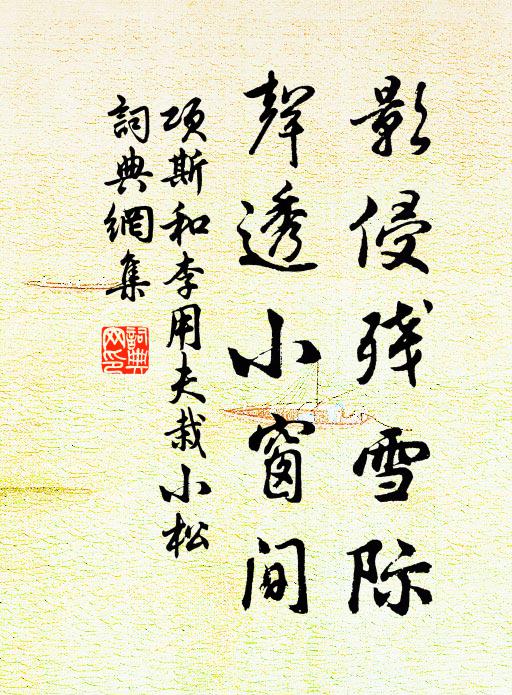 影侵残雪际
聲透小窗间
项斯和李用夫栽小松
詞典網集
詞典网印